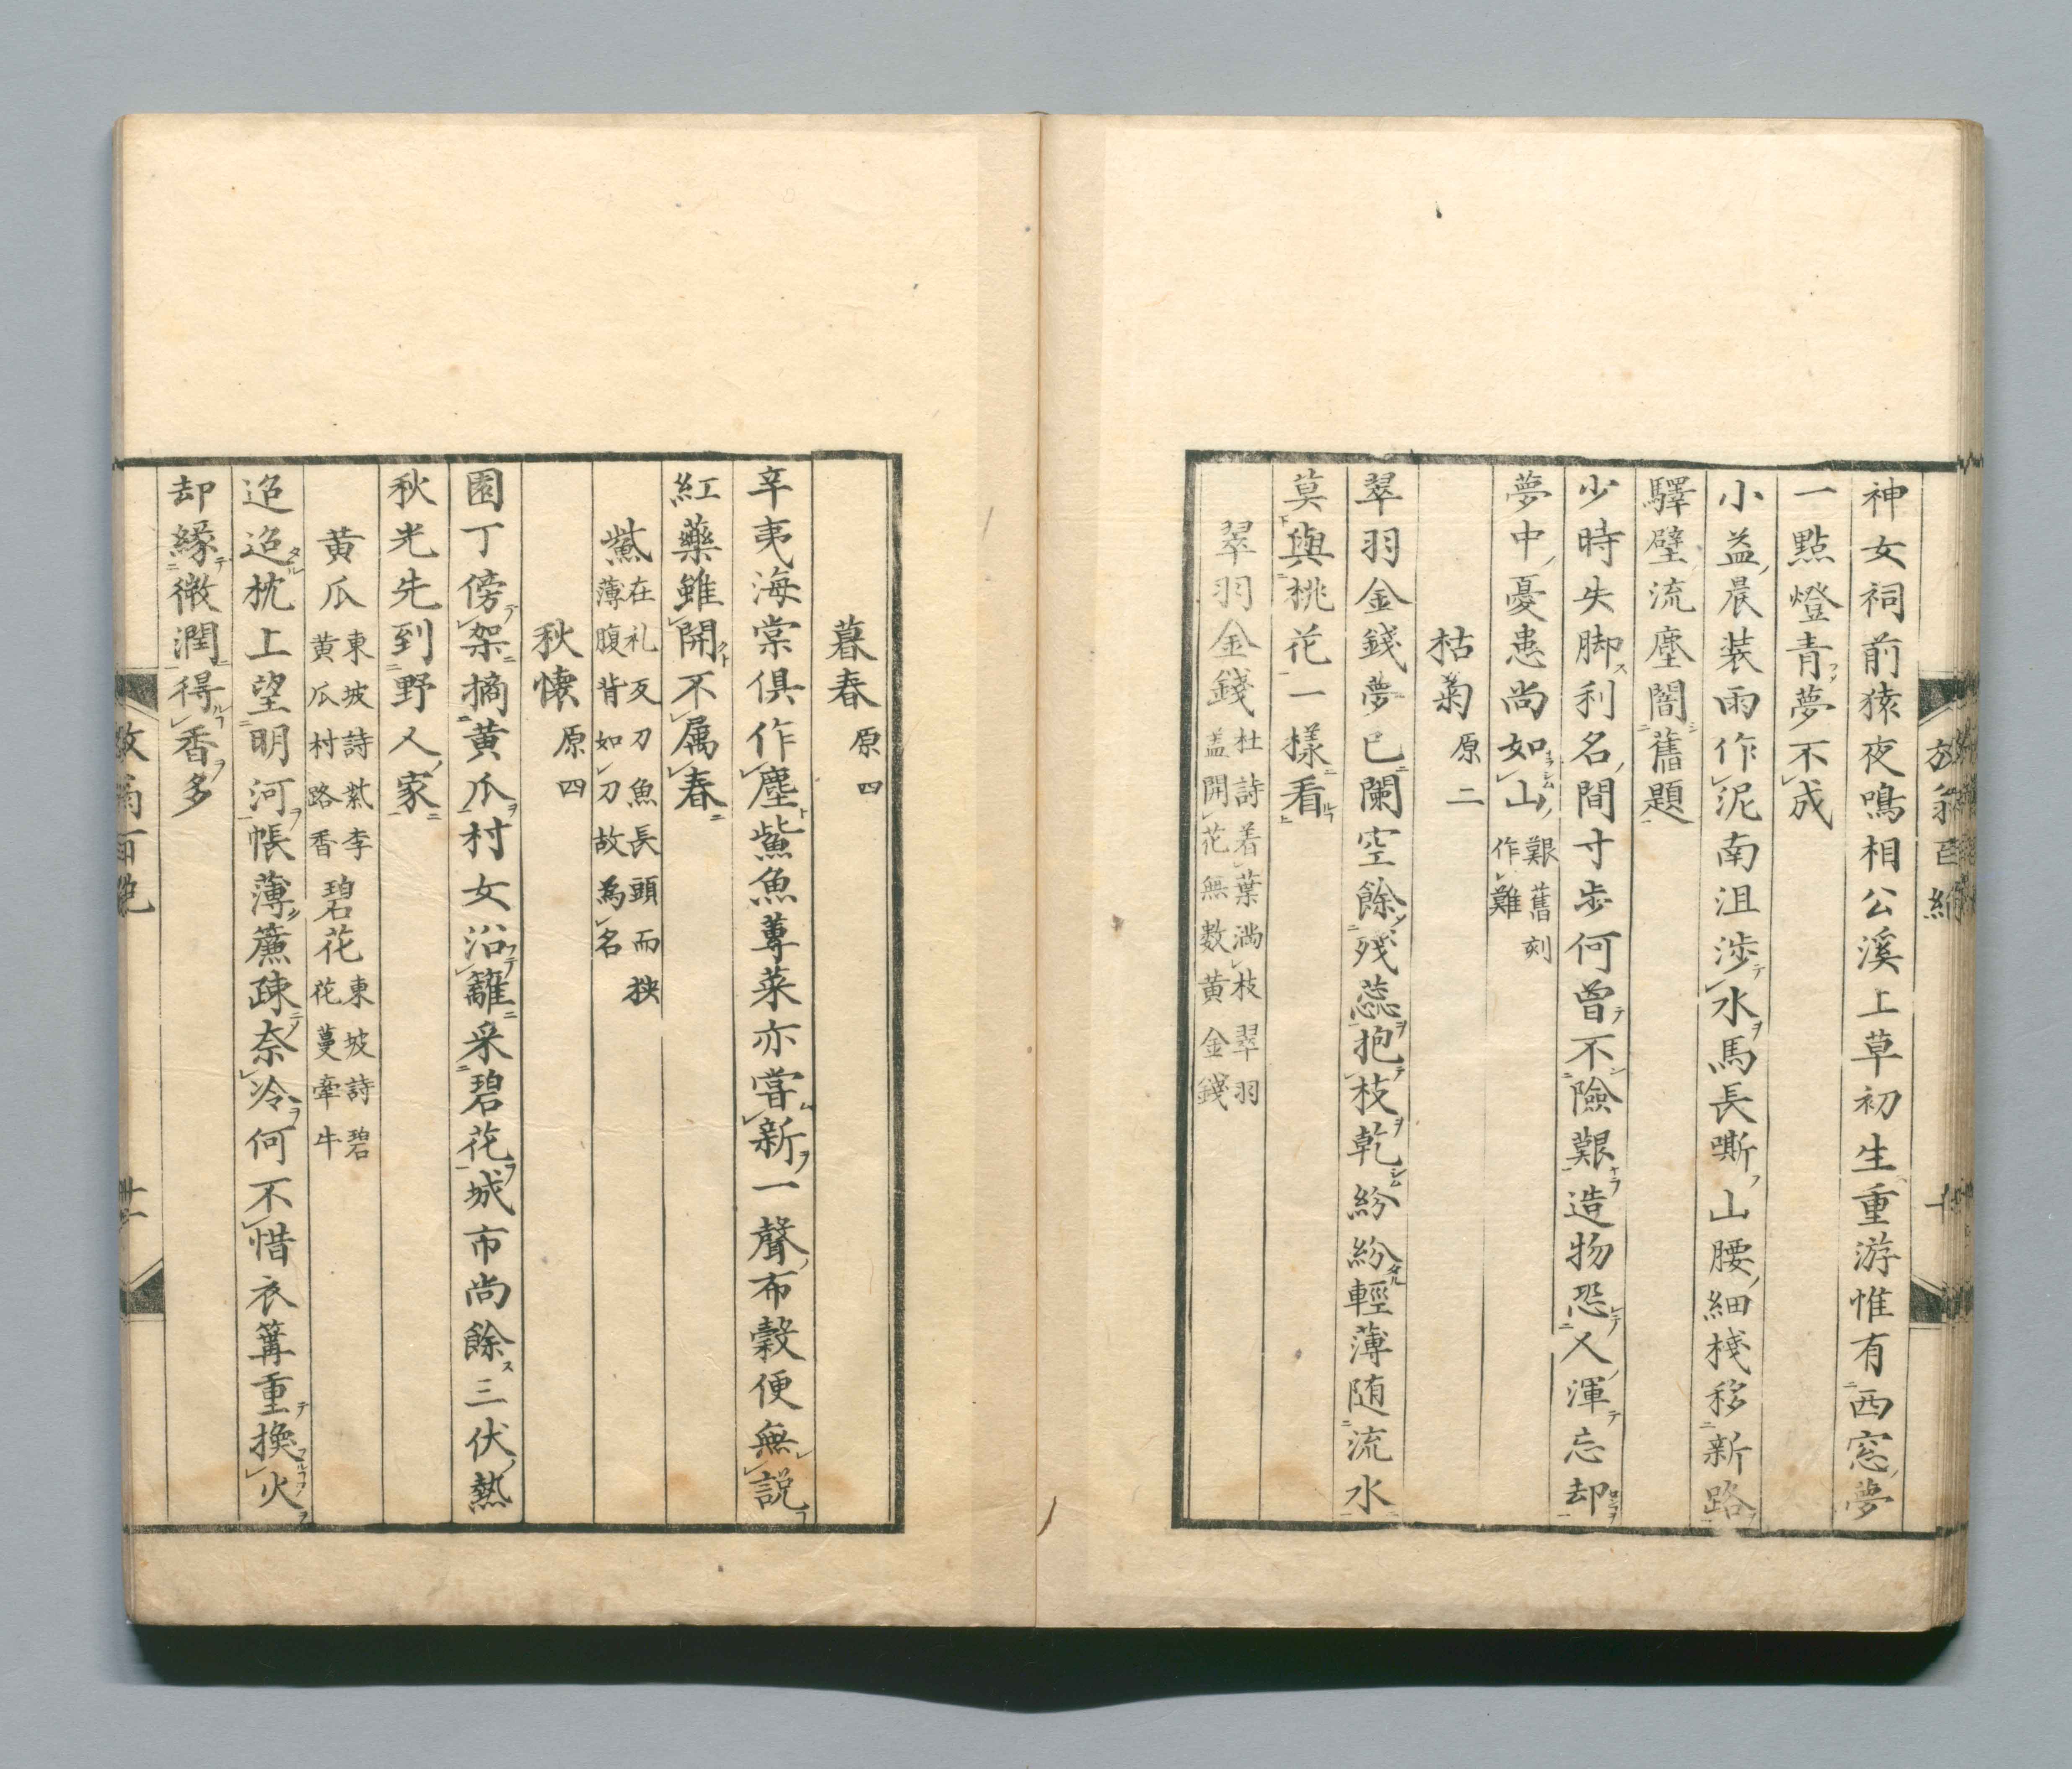 神女祠前猿夜鳴相公溪上草初生重游惟有西窓夢
一點燈青夢不成
小益晨装雨作泥南沮渉水馬長嘶山腰細棧移新路
驛壁流塵闇舊題
少時失脚利名間寸步何曾不險艱造物恐人渾忘却
夢中憂患尚如山艱舊刻作難
枯菊原二
翠羽金錢夢已闌空餘殘蕊抱枝乾紛紛輕薄随流水
莫與桃花一樣看
翠羽金錢杜詩着葉満枝翠羽盖開花無数黄金錢
暮春原四
辛夷海棠俱作塵鮆魚蓴菜亦嘗新一聲布穀便無説
紅藥雖開不属春
鮆在礼反刀魚長頭而狹薄腹背如刀故為名
秋懐原四
園丁傍架摘黄瓜村女沿籬采碧花城市尚餘三伏熱
秋光先到野人家
黄瓜東坡詩紫李黄瓜村路香碧花東坡詩碧花蔓牽牛
迢迢枕上望明河帳薄簾疎奈冷何不惜衣篝重換火
却緣微潤得香多